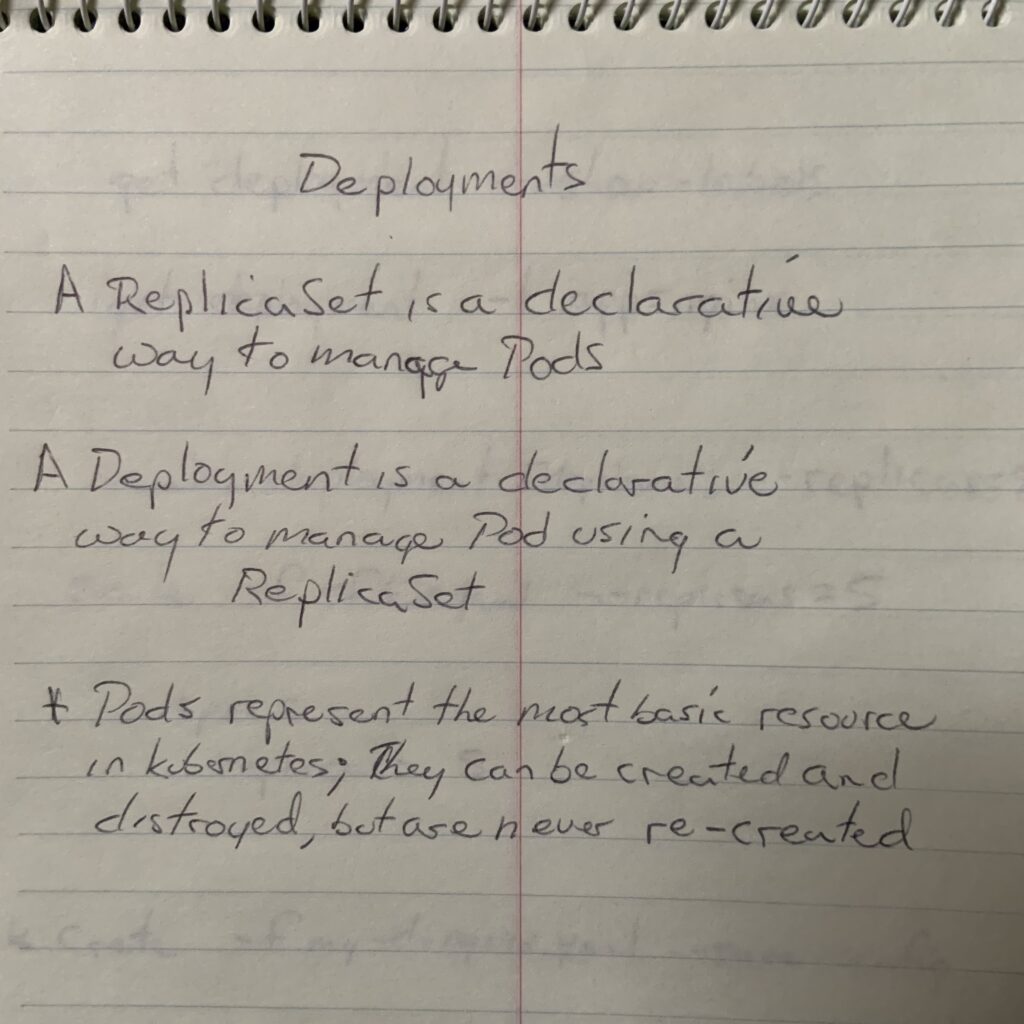 Deployments
A ReplicaSet is a declarative
way to manage Pods
A Deployment is a declarative
way to manage Pod using a
ReplicaSet
* Pods represent the most basic resource
in kubernetes; They can be created and
distroyed, but are never re-created